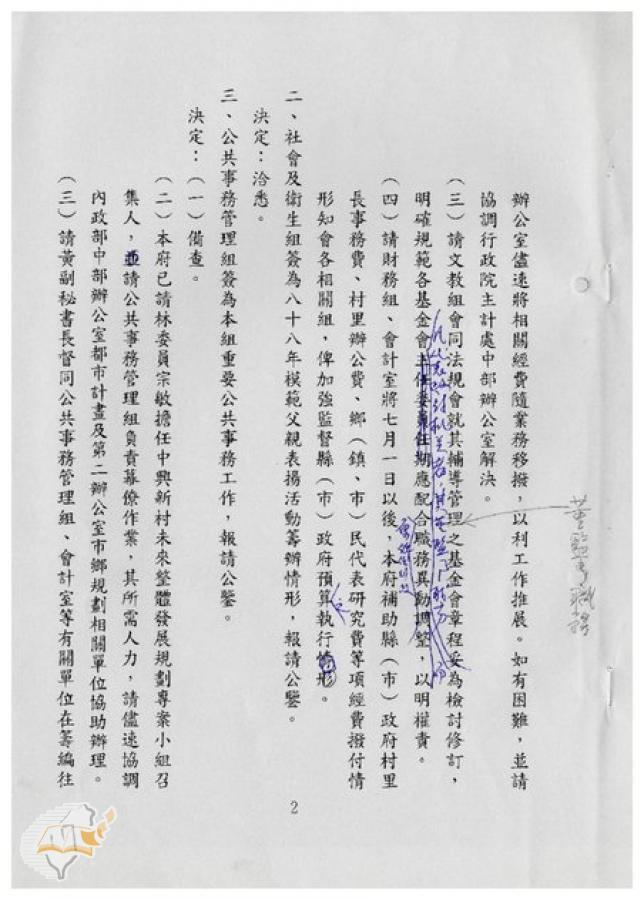 辦公室儘速將相關經費隨業務移撥，以利工作推展。如有困難，並請
協調行政院主計處中部辦公室解決。
（三）請文教組會同法規會就其輔導管理之基金會章程妥為檢討修訂，
明確規範各基金會主任委員任期應配合職務異動調整，以明權責。
（四）請財務組、會計室將七月一日以後，本府補助縣（市）政府村里
長事務費、村里辦公費、鄉（鎮、市）民代表研究費等項經費撥付情
形知會各相關組，俾加強監督縣（市）政府預算執行情形。
二、社會及衛生組簽為八十八年模範父親表揚活動籌辦情形，報請公鑒。
決定：洽悉。
三、公共事務管理組簽為本組重要公共事務工作，報請公鑒。
決定：（一）備查。
（二）本府已請林委員宗敏擔任中興新村未來整體發展規劃專案小組召
集人，並請公共事務管理組負責幕僚作業，其所需人力，請儘速協調
內政部中部辦公室都市計畫及第二辦公室市鄉規劃相關單位協助辦理。
（三）請黃副秘書長督同公共事務管理組、會計室等有關單位在籌編往
2